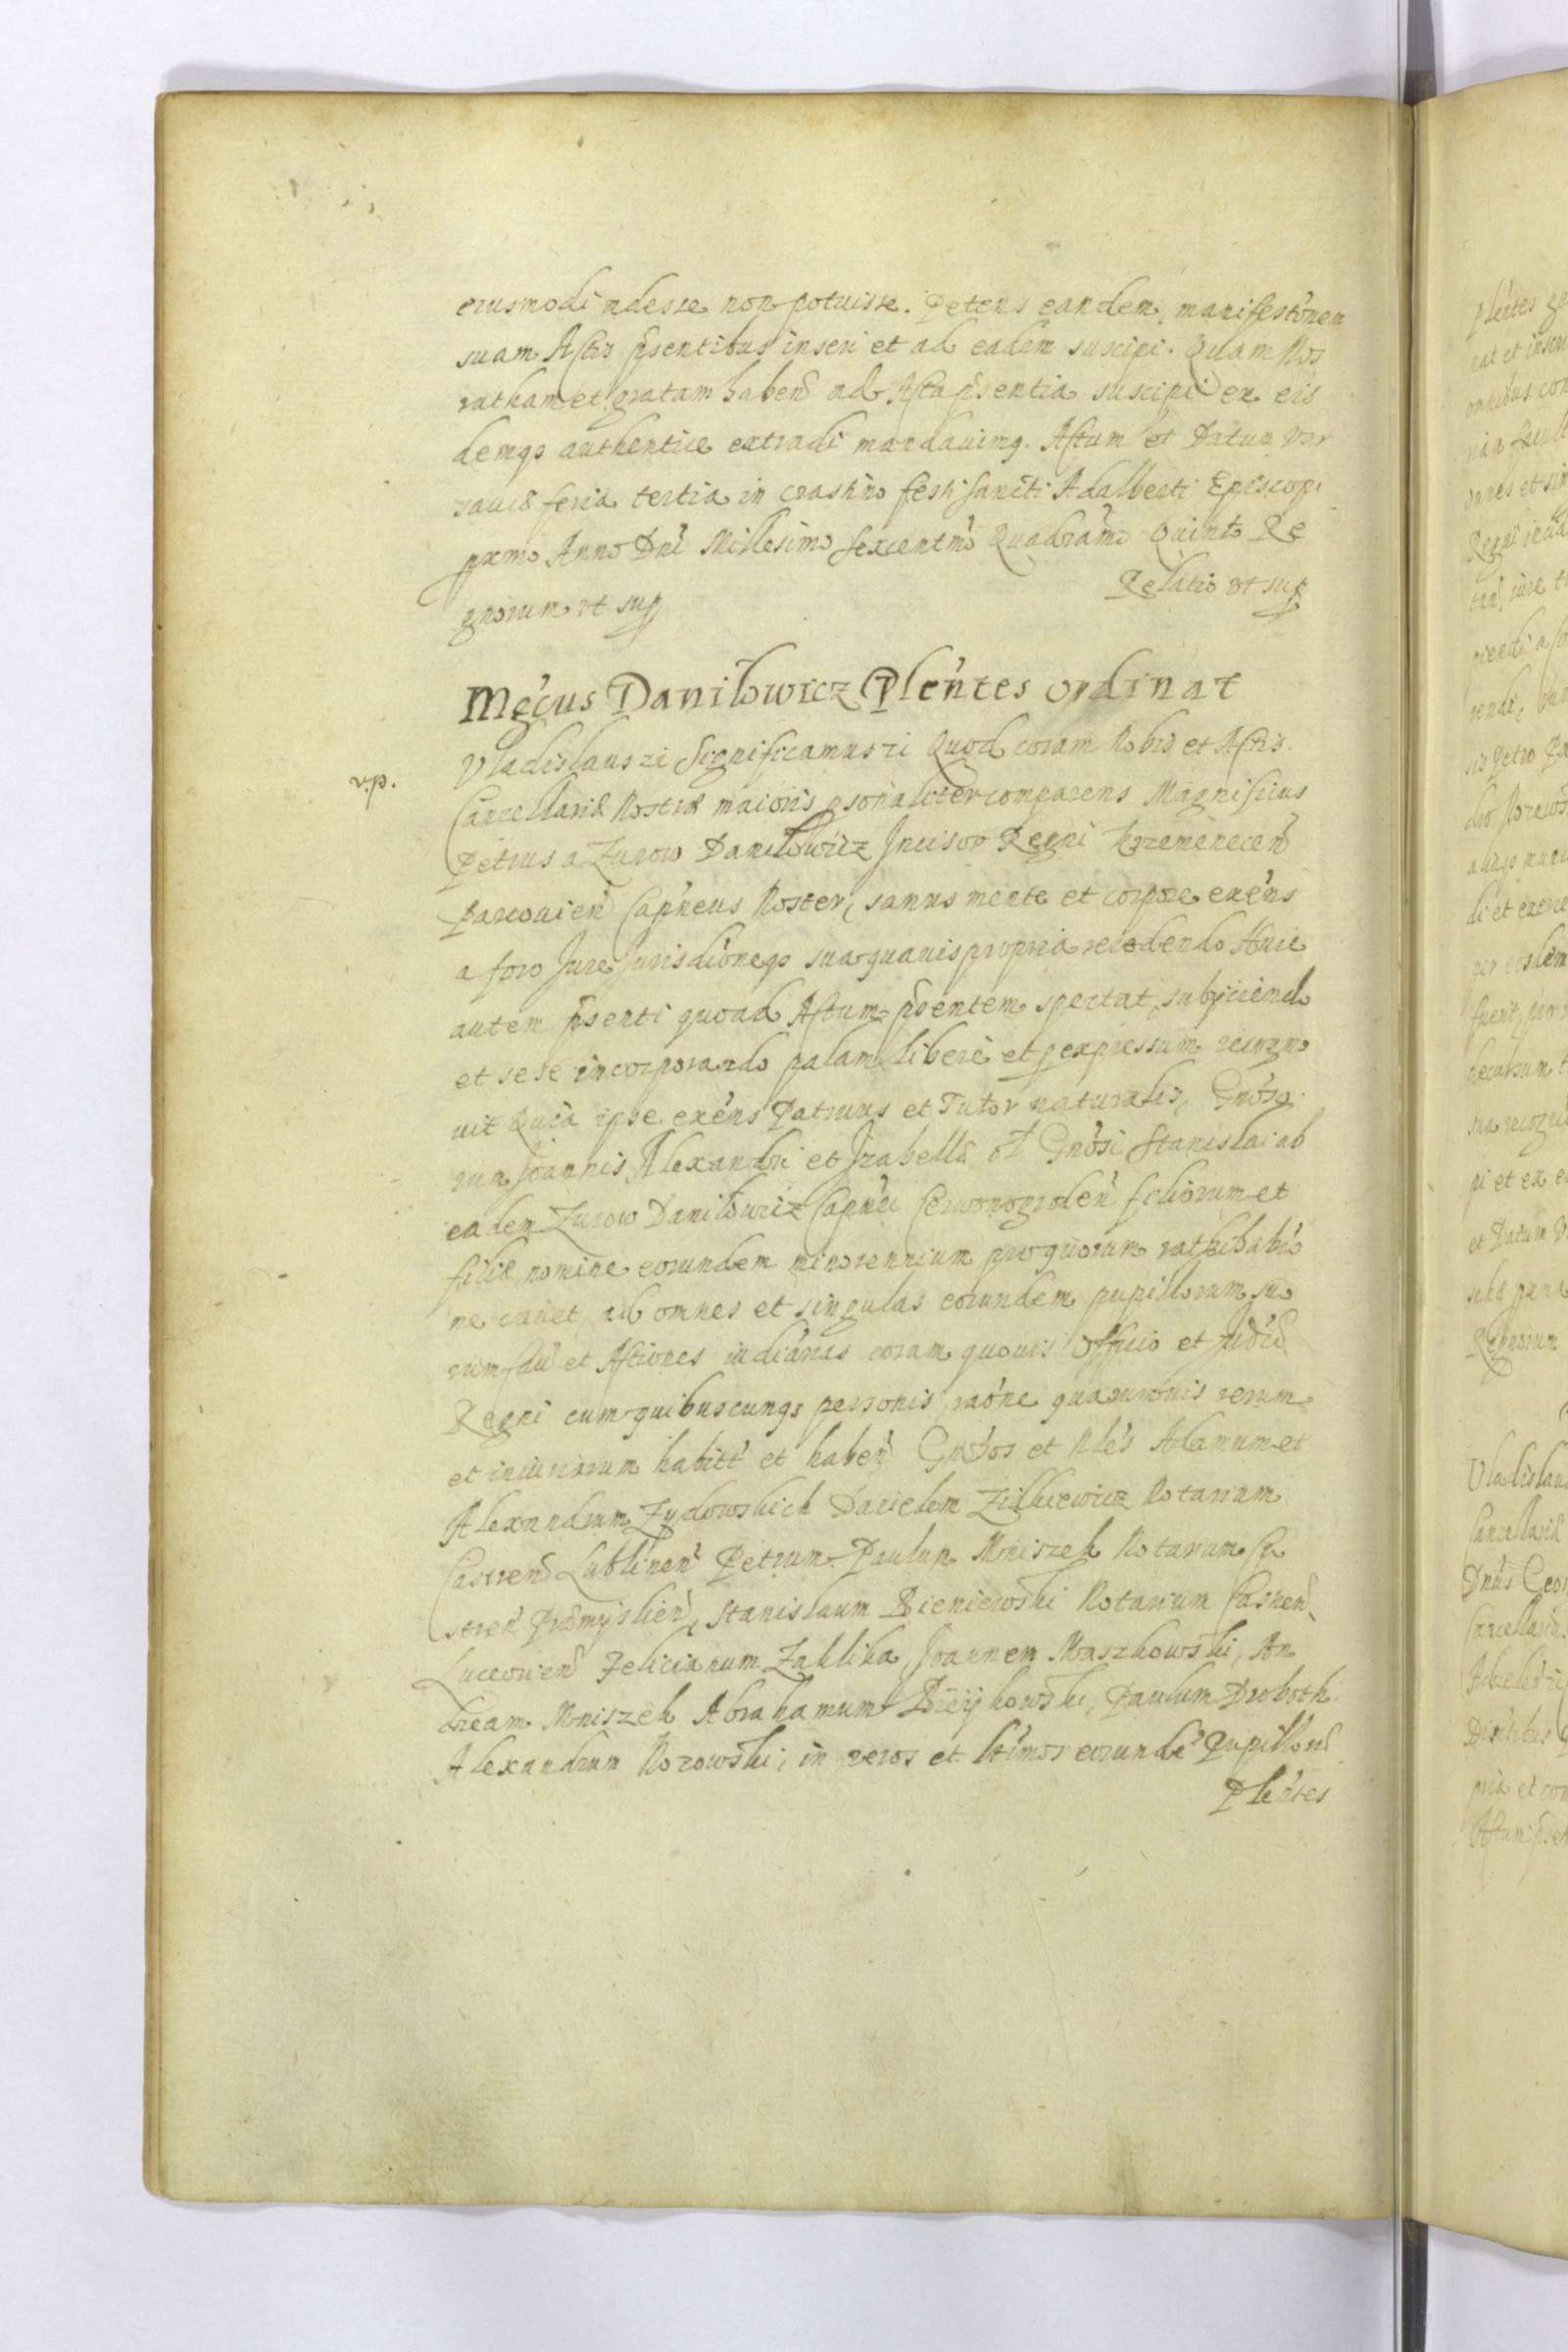 eiusmodi adesse non potuisse. Petens eandem manifestõnem
suam Actis p̃sentibus inseri et ad eadem suscipi. Quam Nos
ratham et gratam haben̄ ad Acta p̃sentia suscipi ex eis
demq3 authentice extradi mandavimq. Actum et Datum Var
saviæ feria tertia in crastino festi Sancti Adalberti Episcopi
pxmo Anno Dnī Millesimo Sexcentmo Quadrãmo Quinto Re
gnorum ut sup
Relatio ut sup
Mgcus Daniłowicz Plen̄tes ordinat
v.p.
Vladislaus zi Significamus zi Quod coram Nobis et Actis
Cancellariæ Nostræ maioris psonaliter comparens Magnificus
Petrus a Zurow Daniłowicz Incisor Regni Krzemenecen̄
Parcovien̄ Capn̄eus Noster, sanus mente et corpore exēns
a foro Jure Jurisdiōneq3 sua quavis propria recedendo Huic
autem p̃senti quoad Actum p̃sentem spectat, subyciendo
et sese incorporando palam libere et p expressum recogno
vit Quia ipse exēns Patruus et Tutor naturalis, Gnōso
rum Joannis Alexandri et Izabellæ ol Gnōsi Stanislai ab
eadem Zurow Daniłowicz Capn̄ei Czerwonogroden̄ filiorum et
filiæ nomine eorundem minorennium pro quorum rathihabiō
ne cavet, ad omnes et singulas eorundem pupillorum suo
rum cau et Actiones iudiciarias coram quovis Officio et Judicio
Regni cum quibuscunq3 personis raōne quarumvis rerum
et iniuriarum habitt et haben̄ Gnōsos et Nles Adamum et
Alexandrum Zydowskich Danielem Zulkiewicz Notarium
Castren̄ Lublinen̄ Petrum Paulum Mniszek Notarium Ca
stren̄ Præmyslien̄, Stanislaum Bieniewski Notarium Castren̄
Luceorien̄ Felicianum Zaklika, Joannem Maszkowski, An
dream Mniszek Abrahamum, Paulum Droboth
Alexandrum Rozowski, in veros et ltimos eorunde Pupillorū
Plen̄tes